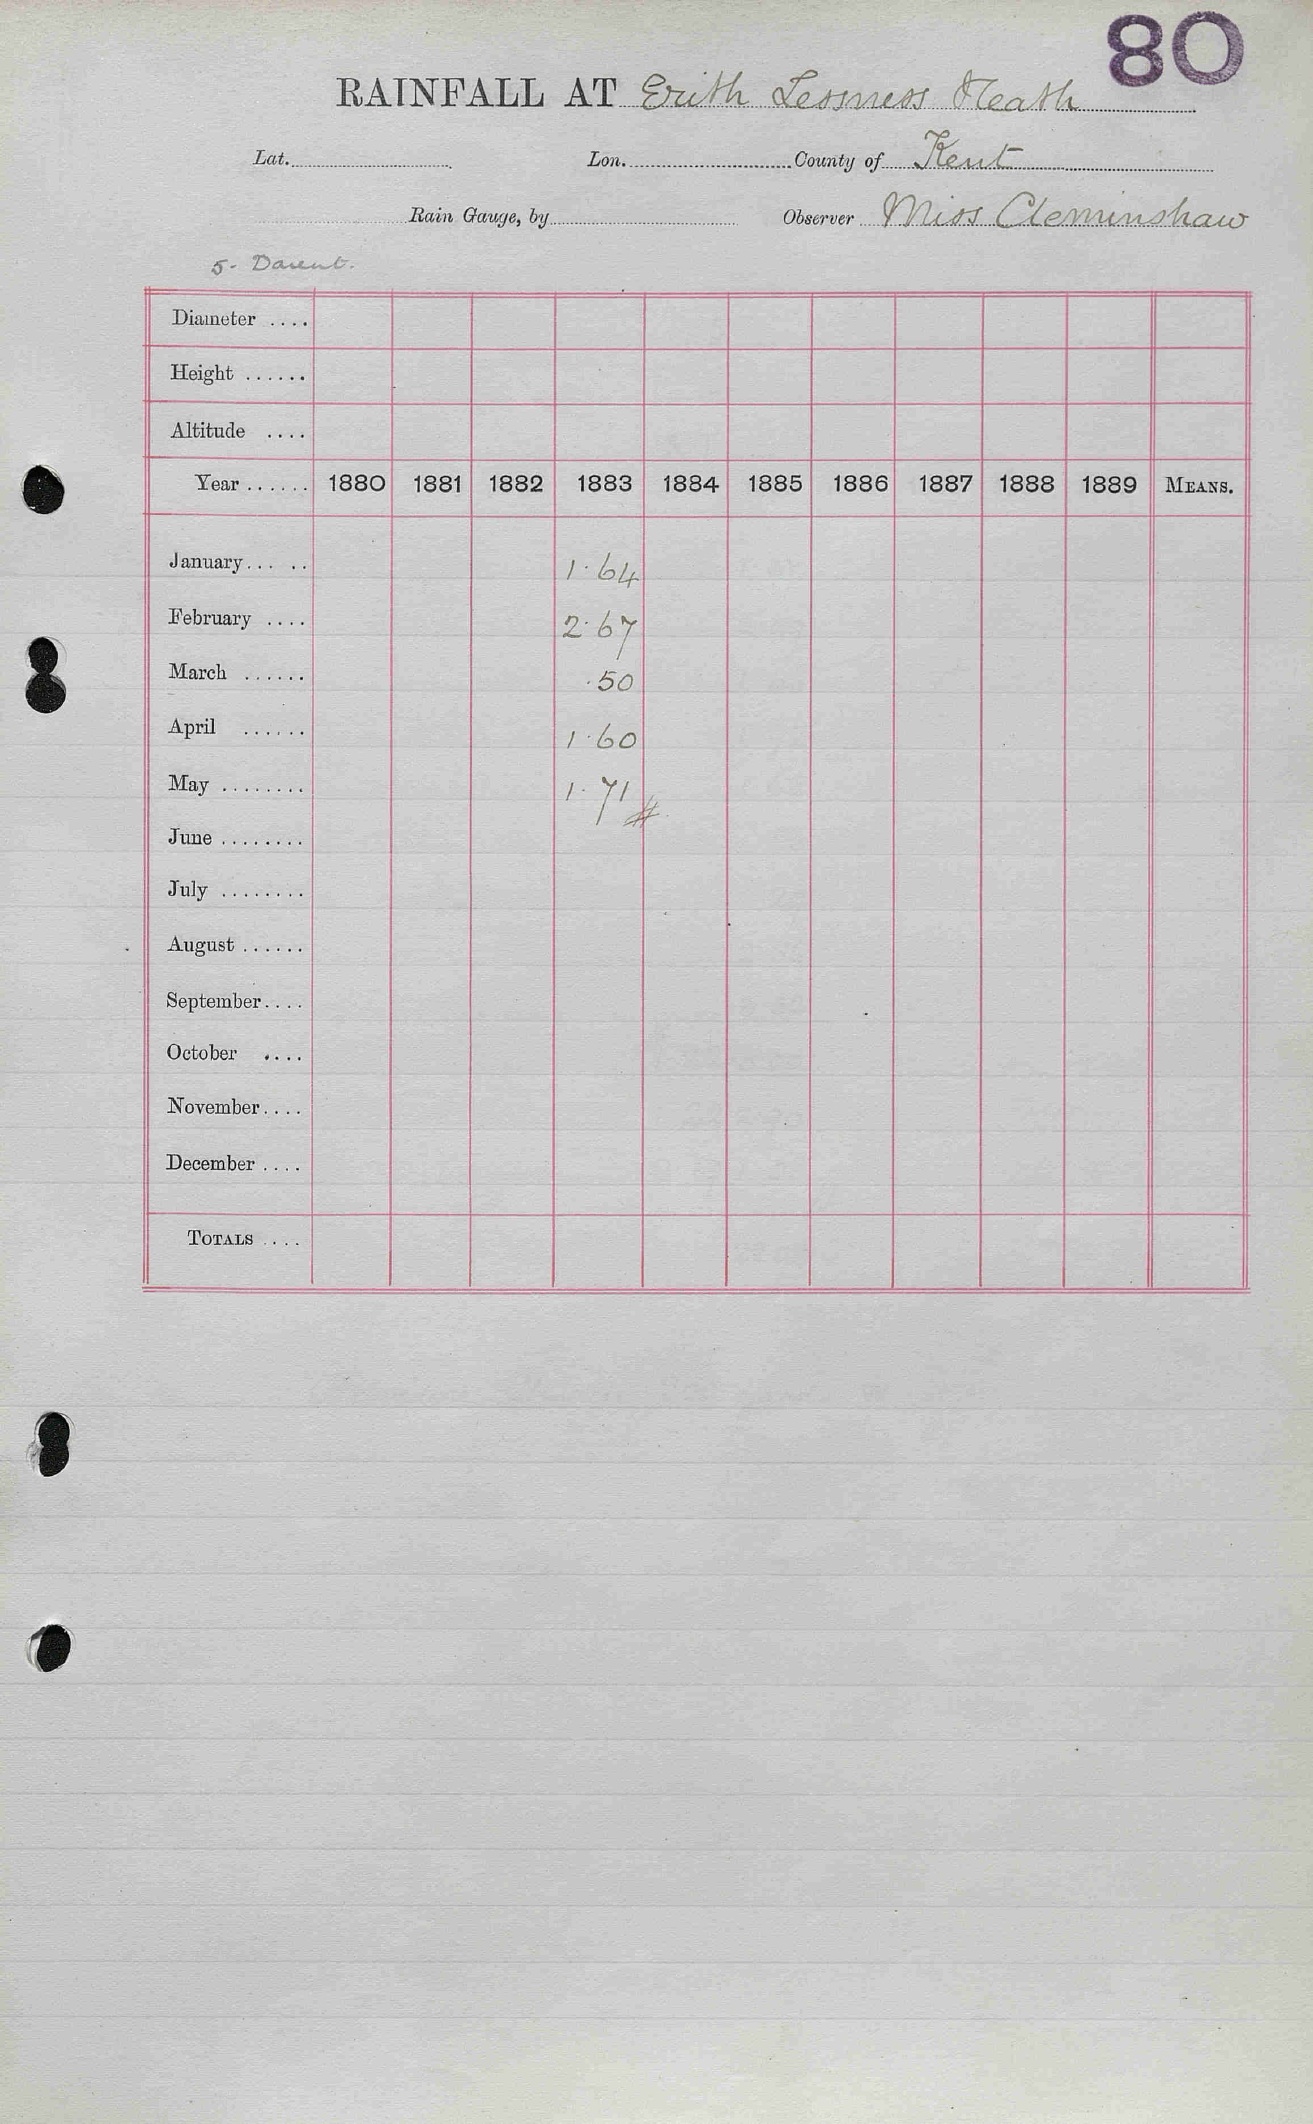 80
RAINFALL AT Erith Lessness Heath
Lat. Lon. County of Kent
Rain Gauge, by Observer Miss Cleminshaw
5. Darent.
Diameter ....
Height ......
Altitude ....
Year ...... 1880 1881 1882 1883 1884 1885 1886 1887 1888 1889 MEANS.
January... .. 1.64
February .... 2.67
March ...... .50
April ...... 1.60
May ........ 1.71 #
June ........
July ........
August ......
September....
October ....
November....
December ....
TOTALS ....